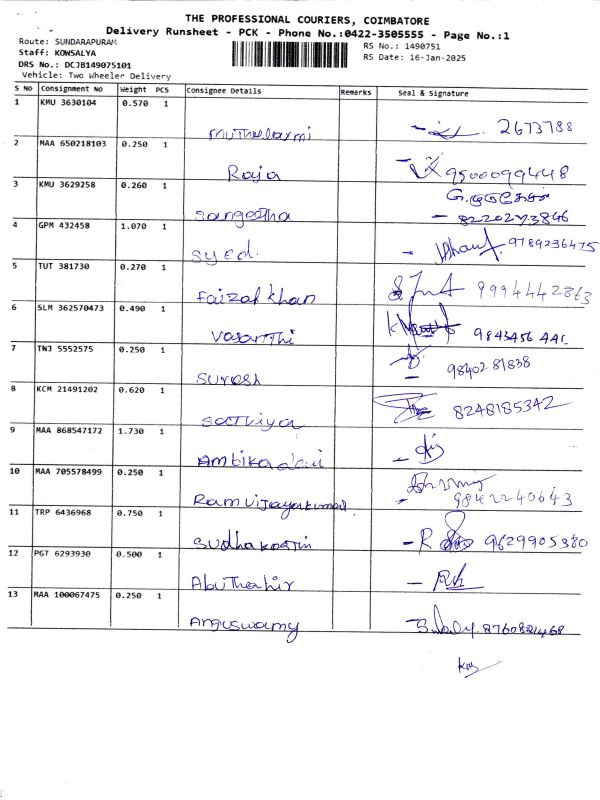 THE PROFESSIONAL COURIERS, COIMBATORE
Delivery Runsheet - PCK - Phone No.:0422-3505555 - Page No.:1
Route: SUNDARAPURAM
RS No.: 1490751
Staff: KOWSALYA
RS Date: 16-Jan-2025
DRS No.: DCJB149075101
Vehicle: Two Wheeler Delivery
S No Consignment No Weight PCS Consignee Details Remarks Seal & Signature
1 KMU 3630104 0.570 1
Muthulaxmi 2673788
2 MAA 650218103 0.250 1
Raja 9500099448
3 KMU 3629258 0.260 1
Sangeetha 8220273846
4 GPM 432458 1.070 1
Syed. 9789236475
5 TUT 381730 0.270 1
Faizal Khan 9994442863
6 SLM 362570473 0.490 1
Vasanthi 9843456
7 TNJ 5552575 0.250 1
Suresh 9840281838
8 KCM 21491202 0.620 1
Sathiya 8248185342
9 MAA 868547172 1.730 1
Ambika
10 MAA 705578499 0.250 1
Ramvijayakumar 9842240643
11 TRP 6436968 0.750 1
9629905380
12 PGT 6293930 0.500 1
Abuthahir
13 MAA 100067475 0.250 1
Anguswamy 8760821468